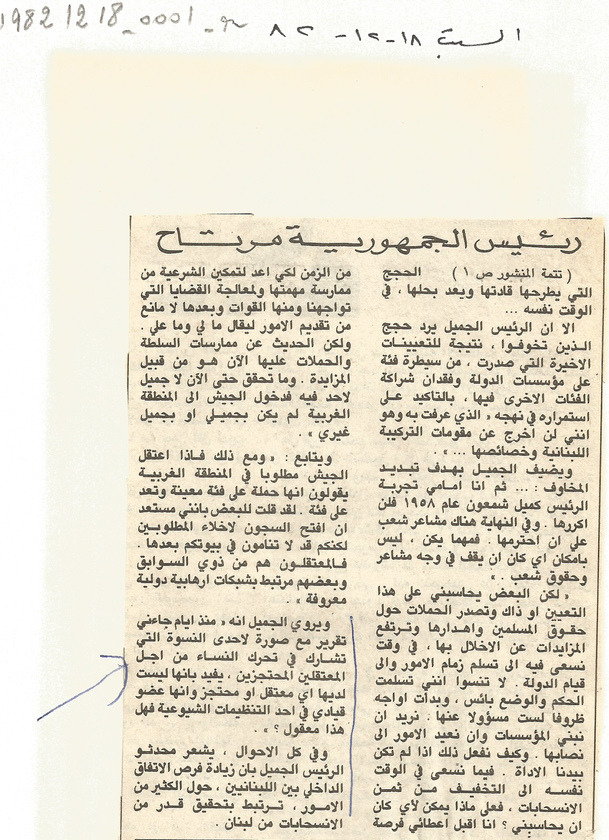 1982 12 18_0001_
السبت ١٨-١٢-٨٢
رئيس الجمهورية مرتاح
( تتمة المنشور ص ١ ) الحجج
التي يطرحها قادتها ويعد بحلها ، في
الوقت نفسه ...
الا ان الرئيس الجميل يرد حجج
الذين تخوفوا ، نتيجة للتعيينات
الاخيرة التي صدرت ، من سيطرة فئة
على مؤسسات الدولة وفقدان شراكة
الفئات الاخرى فيها ، بالتاكيد على
استمراره في نهجه « الذي عرفت به وهو
انني لن اخرج عن مقومات التركيبة
اللبنانية وخصائصها ... » .
ويضيف الجميل بهدف تبديد
المخاوف : ... ثم انا امامي تجربة
الرئيس كميل شمعون عام ١٩٥٨ فلن
اكررها . وفي النهاية هناك مشاعر شعب
علي ان احترمها . فمهما يكن ، ليس
بامكان اي كان ان يقف في وجه مشاعر
وحقوق شعب . »
« لكن البعض يحاسبني على هذا
التعيين او ذاك وتصدر الحملات حول
حقوق المسلمين واهدارها وترتفع
المزايدات عن الاخلال بها ، في وقت
نسعى فيه الى تسلم زمام الامور والى
قيام الدولة . لا تنسوا انني تسلمت
الحكم والوضع بائس ، وبدأت اواجه
ظروفا لست مسؤولا عنها . نريد ان
نبني المؤسسات وان نعيد الامور الى
نصابها . وكيف نفعل ذلك اذا لم تكن
بيدنا الاداة . فيما نسعى في الوقت
نفسه الى التخفيف من ثمن
الانسحابات ، فعلى ماذا يمكن لأي كان
ان يحاسبني ؟ انا اقبل اعطائي فرصة
من الزمن لكي اعد لتمكين الشرعية من
ممارسة مهمتها ولمعالجة القضايا التي
تواجهنا ومنها القوات وبعدها لا مانع
من تقديم الامور ليقال ما لي وما علي .
ولكن الحديث عن ممارسات السلطة
والحملات عليها الآن هو من قبيل
المزايدة . وما تحقق حتى الآن لا جميل
لاحد فيه فدخول الجيش الى المنطقة
الغربية لم يكن بجميلي او بجميل
غيري » .
ويتابع : « ومع ذلك فاذا اعتقل
الجيش مطلوبا في المنطقة الغربية
يقولون انها حملة على فئة معينة وتعد
على فئة . لقد قلت للبعض بانني مستعد
ان افتح السجون لاخلاء المطلوبين
لكنكم قد لا تنامون في بيوتكم بعدها .
فالمعتقلون هم من ذوي السوابق
وبعضهم مرتبط بشبكات ارهابية دولية
معروفة » .
ويروي الجميل انه « منذ ايام جاءني
تقرير مع صورة لاحدى النسوة التي
تشارك في تحرك النساء من اجل
المعتقلين المحتجزين ، يفيد بانها ليست
لديها اي معتقل او محتجز وانها عضو
قيادي في احد التنظيمات الشيوعية فهل
هذا معقول ؟ » .
وفي كل الاحوال ، يشعر محدثو
الرئيس الجميل بان زيادة فرص الاتفاق
الداخلي بين اللبنانيين ، حول الكثير من
الامور ، ترتبط بتحقيق قدر من
الانسحابات من لبنان .